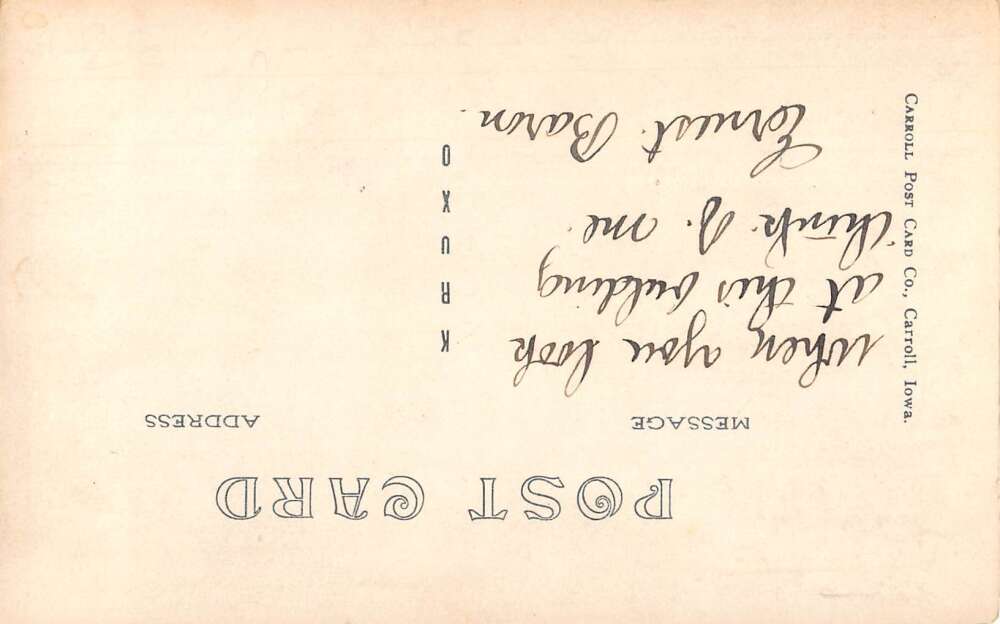 POST CARD
MESSAGE
ADDRESS
When you look
at this building
think of me.
Ernest Baron.
KRUXO
CARROLL POST CARD CO., Carroll, Iowa.